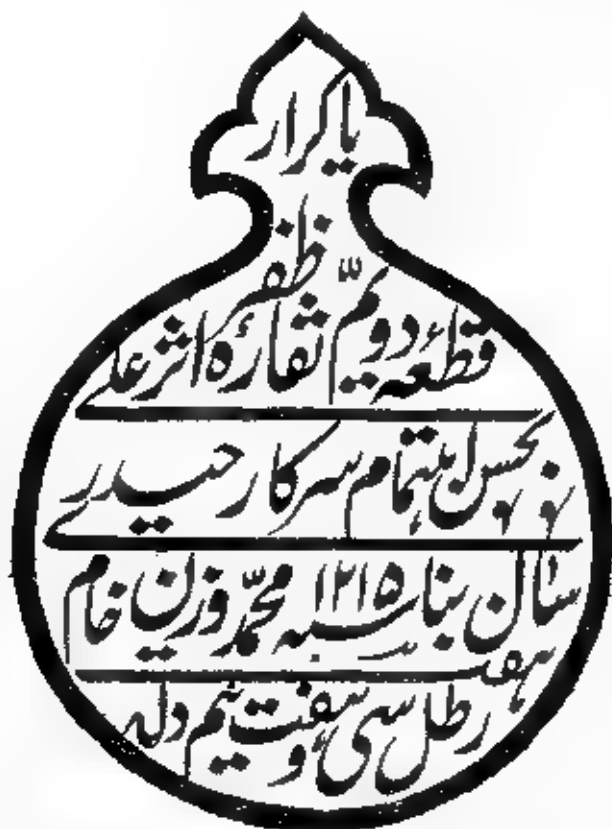 یا کرار
ظفر
قطعهٔ دویم نقارهٔ اثر علی
بحسن اهتمام سرکار حیدری
سال بنا سنه ۱۲۱۵ محمّد وزن خام
هفت
رطل سی و هفت نیم